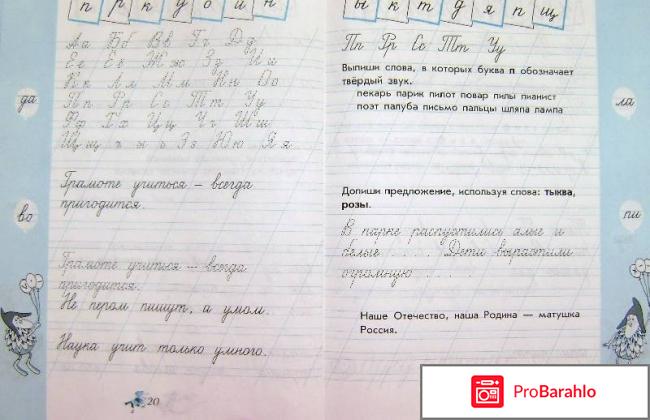 п р к у о и н
Аа Бб Вв Гг Дд
Ее Ёё Жж Зз Ии
Кк Лл Мм Нн Оо
Пп Рр Сс Тт Уу
Фф Хх Цц Чч Шш
Щщ ъ ы ь Ээ Юю Яя
да
Грамоте учиться – всегда
пригодится.
во
Грамоте учиться – всегда
пригодится.
Не пером пишут, а умом.
Наука учит только умного.
20
ы к т д я п щ
Пп Рр Сс Тт Уу
Выпиши слова, в которых буква п обозначает
твёрдый звук.
пекарь парик пилот повар пилы пианист
поэт палуба письмо пальцы шляпа лампа
ла
Допиши предложение, используя слова: тыква,
розы.
пи
В парке распустились алые и
белые .... Дети вырастили
огромную ....
Наше Отечество, наша Родина — матушка
Россия.
ProBarahlo